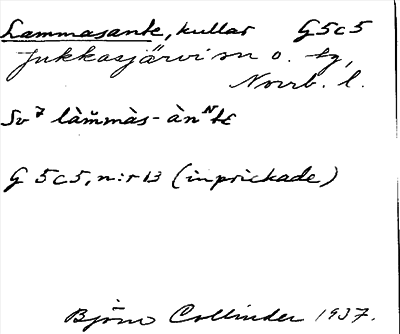 Lammasante, kullar G5c5
Jukkasjärvi sn o. tg,
Norrb. l.
Sv⁷ làm̆màs-àn ᴺtε
G 5c5, n:r 13 (inprickade)
Björn Collinder 1937.